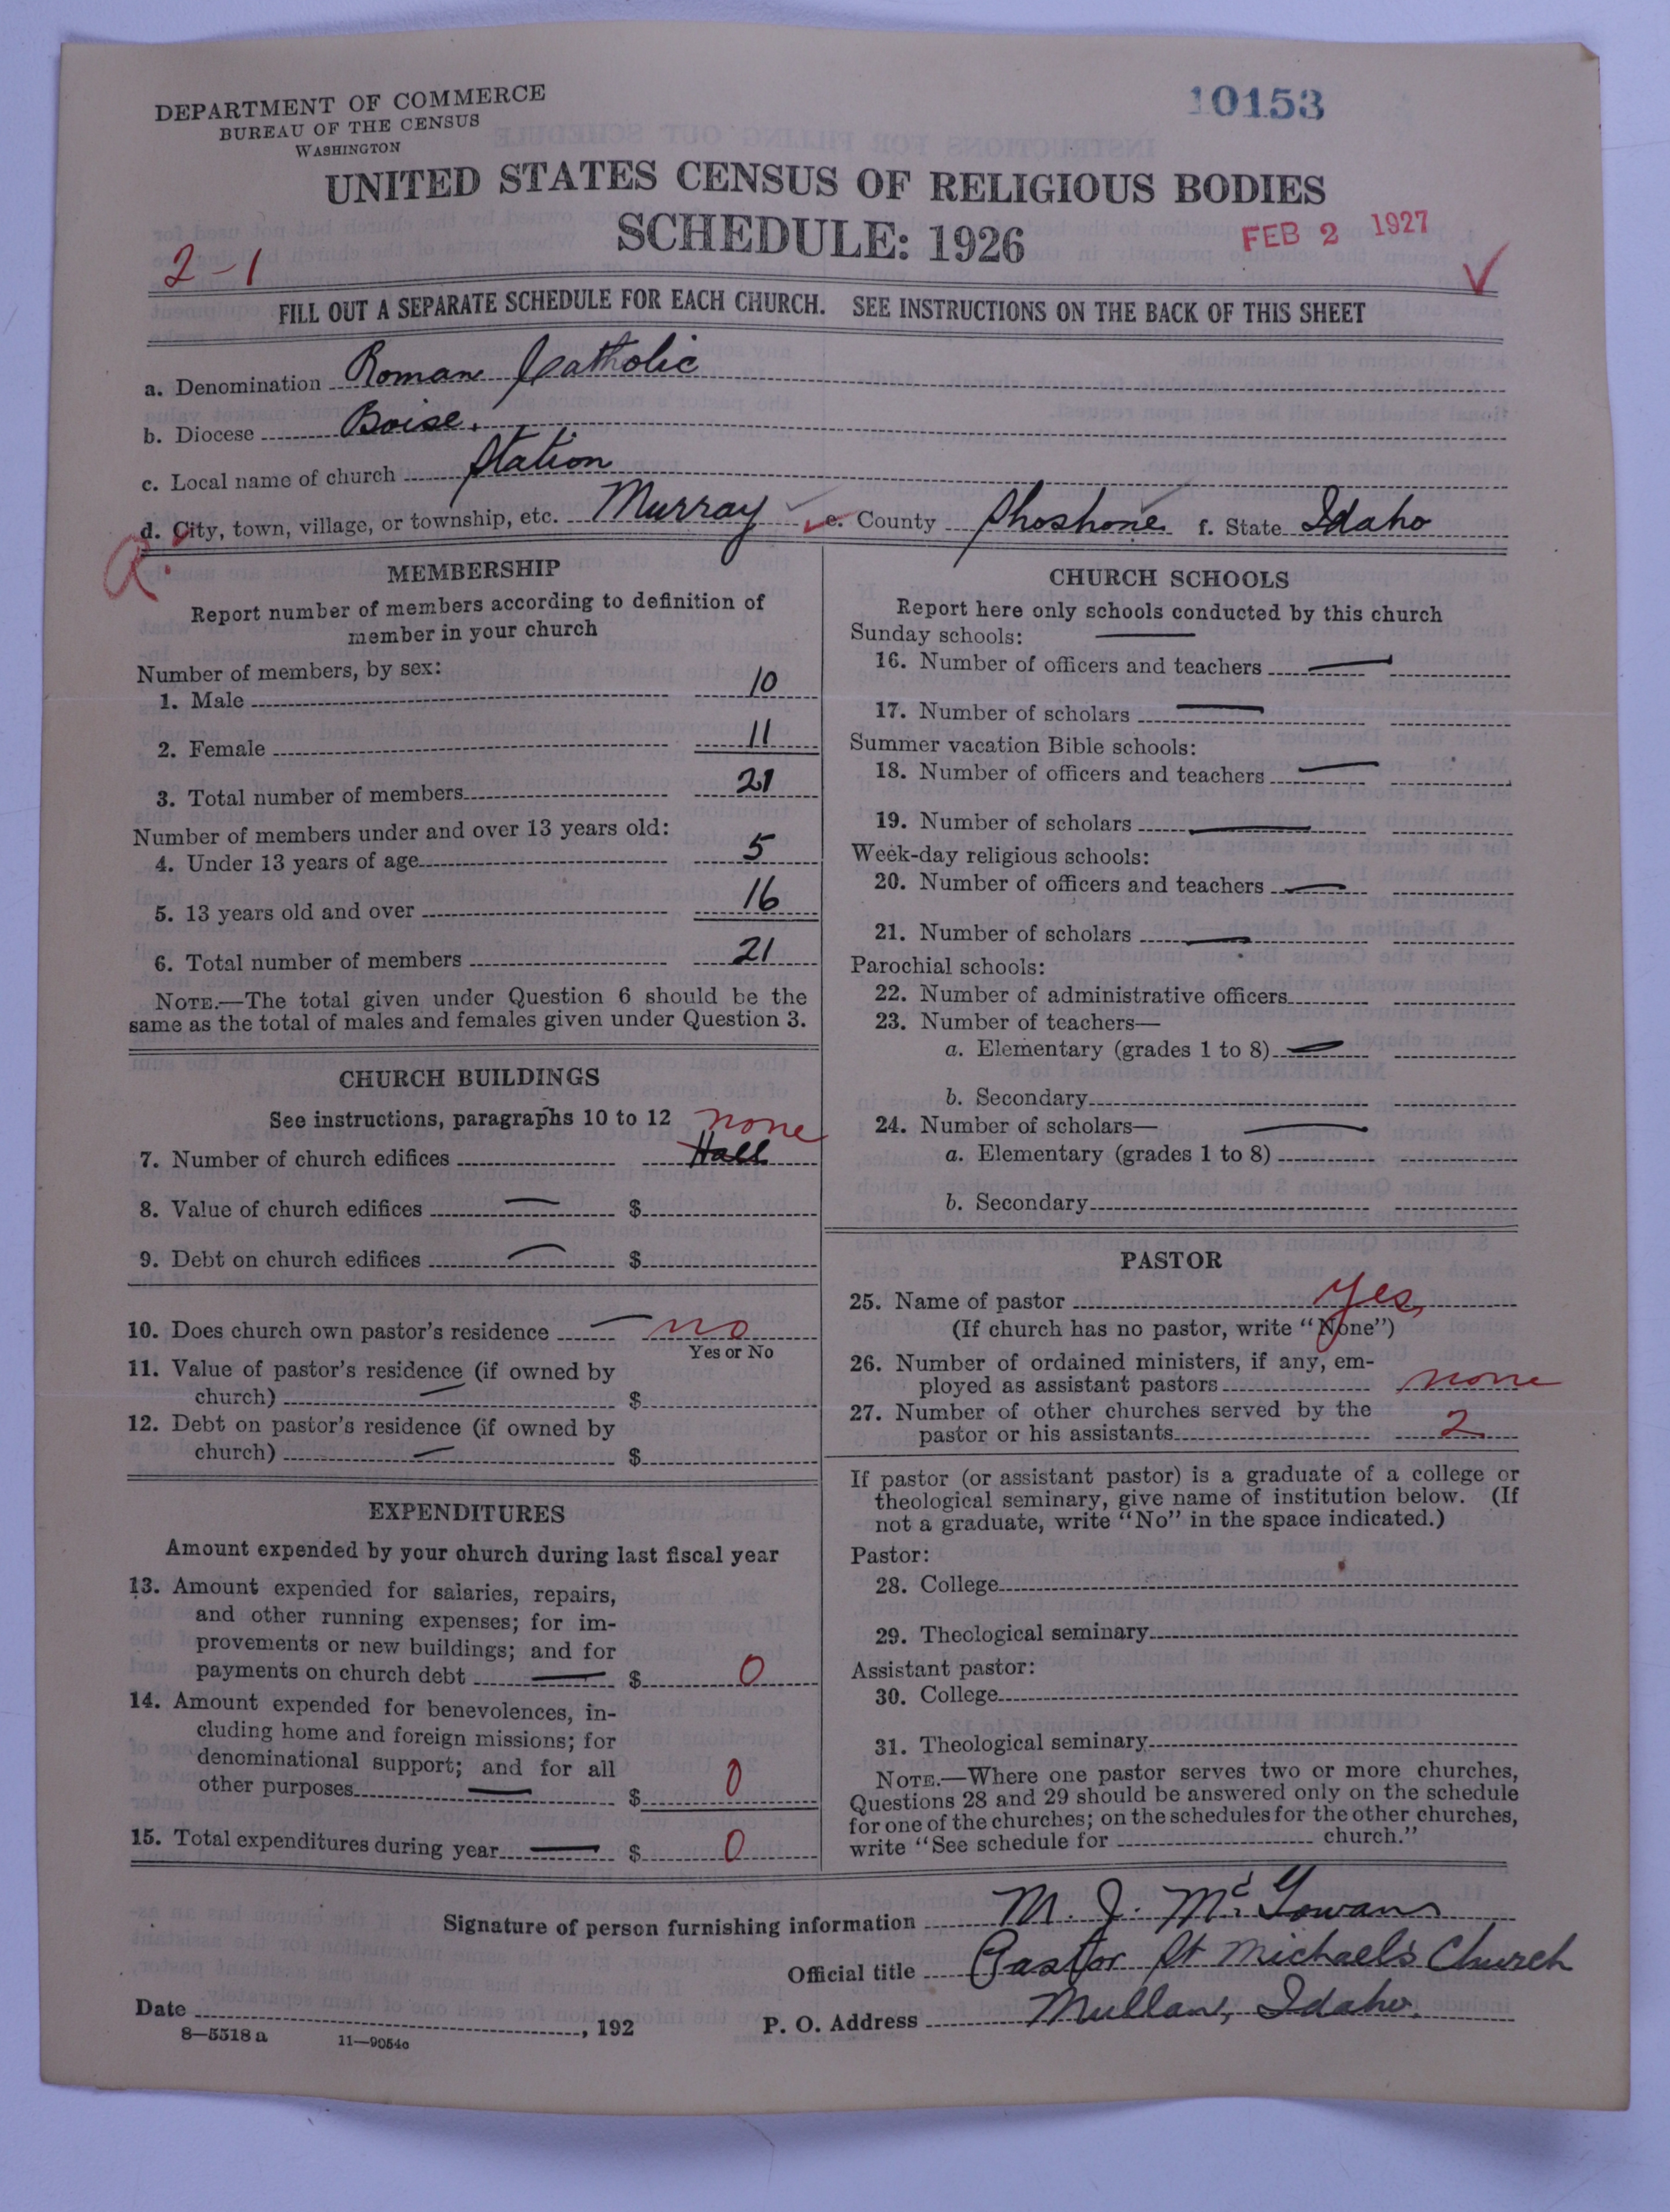 DEPARTMENT OF COMMERCE
BUREAU OF THE CENSUS
WASHINGTON
10153
UNITED STATES CENSUS OF RELIGIOUS BODIES
SCHEDULE: 1926
FEB 2 1927
2-1
FILL OUT A SEPARATE SCHEDULE FOR EACH CHURCH. SEE INSTRUCTIONS ON THE BACK OF THIS SHEET
a. Denomination Roman Catholic
b. Diocese Boise.
c. Local name of church Station
d. City, town, village, or township, etc. Murray e. County Shoshone f. State Idaho
R.
MEMBERSHIP
Report number of members according to definition of
member in your church
Number of members, by sex:
1. Male 10
2. Female 11
3. Total number of members 21
Number of members under and over 13 years old:
4. Under 13 years of age 5
5. 13 years old and over 16
6. Total number of members 21
NOTE.—The total given under Question 6 should be the
same as the total of males and females given under Question 3.
CHURCH BUILDINGS
See instructions, paragraphs 10 to 12 none
7. Number of church edifices Hall
8. Value of church edifices — $
9. Debt on church edifices — $
10. Does church own pastor's residence — no
Yes or No
11. Value of pastor's residence (if owned by
church) — $
12. Debt on pastor's residence (if owned by
church) — $
EXPENDITURES
Amount expended by your church during last fiscal year
13. Amount expended for salaries, repairs,
and other running expenses; for im-
provements or new buildings; and for
payments on church debt — $ 0
14. Amount expended for benevolences, in-
cluding home and foreign missions; for
denominational support; and for all
other purposes — $ 0
15. Total expenditures during year — $ 0
CHURCH SCHOOLS
Report here only schools conducted by this church
Sunday schools: —
16. Number of officers and teachers —
17. Number of scholars —
Summer vacation Bible schools:
18. Number of officers and teachers —
19. Number of scholars —
Week-day religious schools:
20. Number of officers and teachers —
21. Number of scholars —
Parochial schools:
22. Number of administrative officers
23. Number of teachers—
a. Elementary (grades 1 to 8) —
b. Secondary
24. Number of scholars— —
a. Elementary (grades 1 to 8)
b. Secondary
PASTOR
25. Name of pastor Yes
(If church has no pastor, write "None")
26. Number of ordained ministers, if any, em-
ployed as assistant pastors none
27. Number of other churches served by the
pastor or his assistants 2
If pastor (or assistant pastor) is a graduate of a college or
theological seminary, give name of institution below. (If
not a graduate, write "No" in the space indicated.)
Pastor:
28. College
29. Theological seminary
Assistant pastor:
30. College
31. Theological seminary
NOTE.—Where one pastor serves two or more churches,
Questions 28 and 29 should be answered only on the schedule
for one of the churches; on the schedules for the other churches,
write "See schedule for church."
Signature of person furnishing information M. J. McGowan
Official title Pastor St Michaels Church
Date , 192 P. O. Address Mullan, Idaho.
8—5518 a 11—9054c